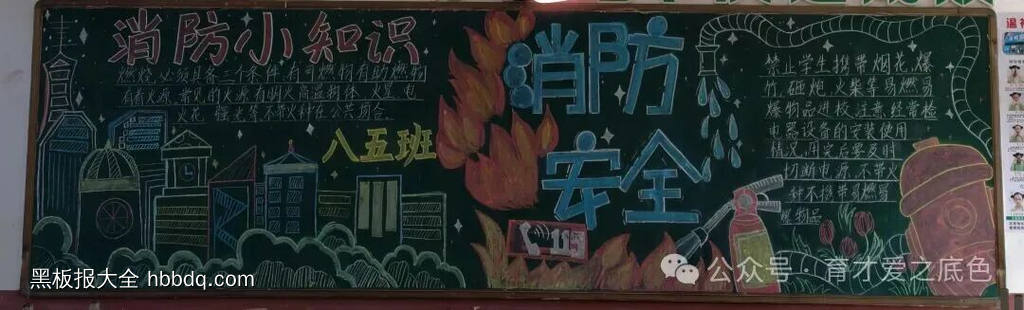 消防小知识
燃烧必须具备三个条件有可燃物有助燃物
有着火源常见的火源有明火高温物体火星电
火花雷击等不带火种在公共场合
八五班
消防
安全
115
禁止学生携带烟花、爆
竹、砸炮、火柴等易燃易
爆物品进校注意经常检
电器设备的安装使用
情况用完后要及时
切断电源不带火
种不携带易燃易
爆物品
黑板报大全 hbbdq.com
公众号·育才爱之底色